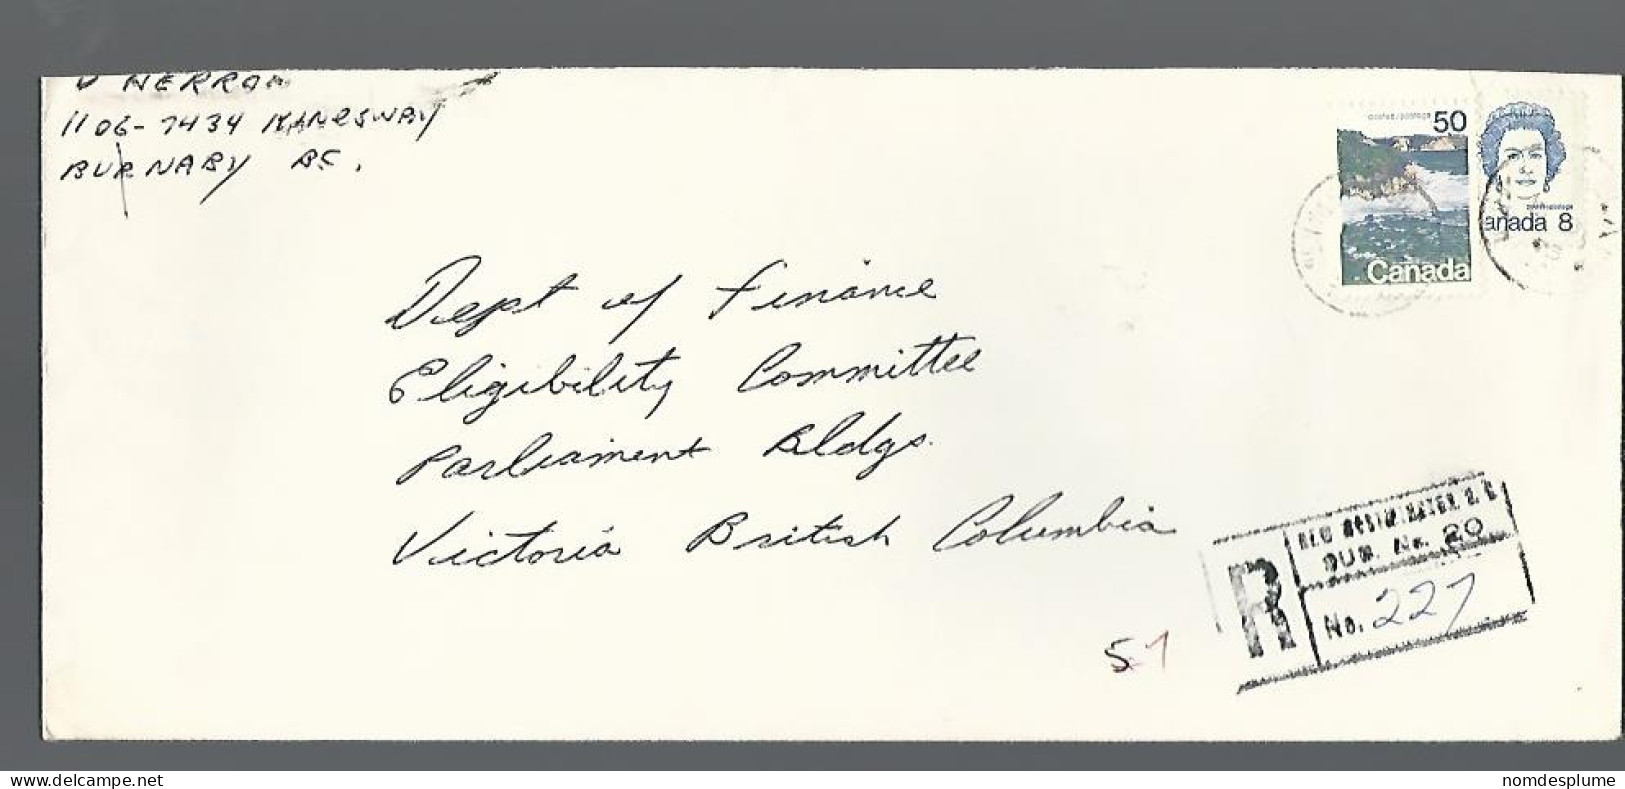 1106-7434 KINGSWAY
BURNABY BC.
postes/postage 50
Canada
postes-postage
anada 8
Dept of Finance
Eligibility Committee
Parliament Bldgs.
Victoria British Columbia
R
NEW WESTMINSTER B.C.
SUB. No. 20
No. 227
57
www.delcampe.net
nomdesplume